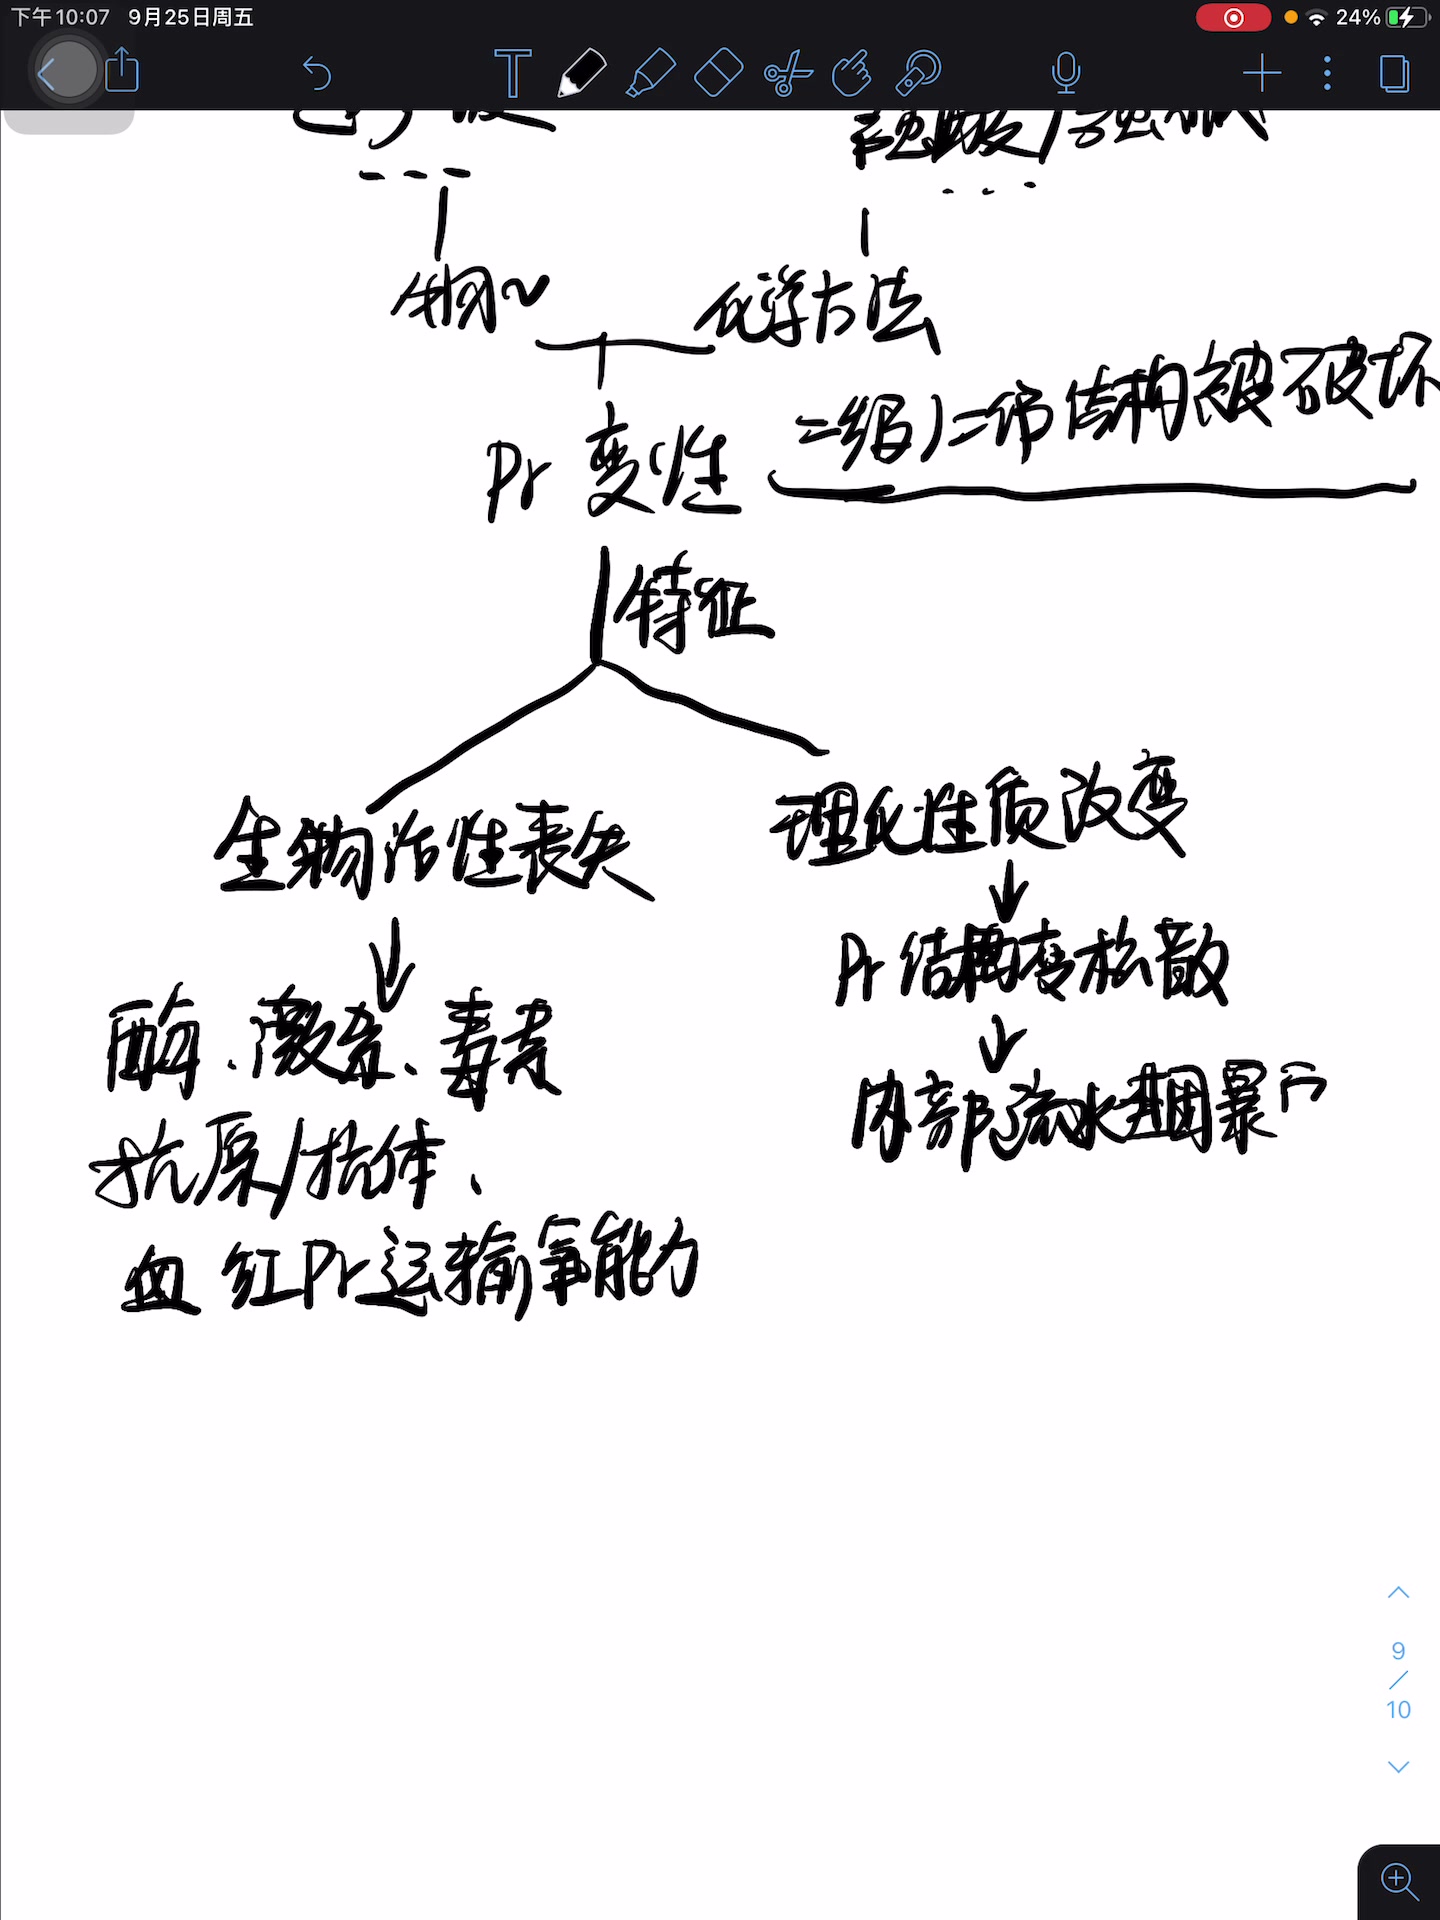 下午10:07 9月25日周五 24%
强酸/强碱
化学方法
Pr 变性
结构被破坏
特征
生物活性丧失 理化性质改变
Pr 结构变松散
酶、激素、毒素
内部疏水基团暴
抗原/抗体、
血红Pr运输氧能力
9
/
10